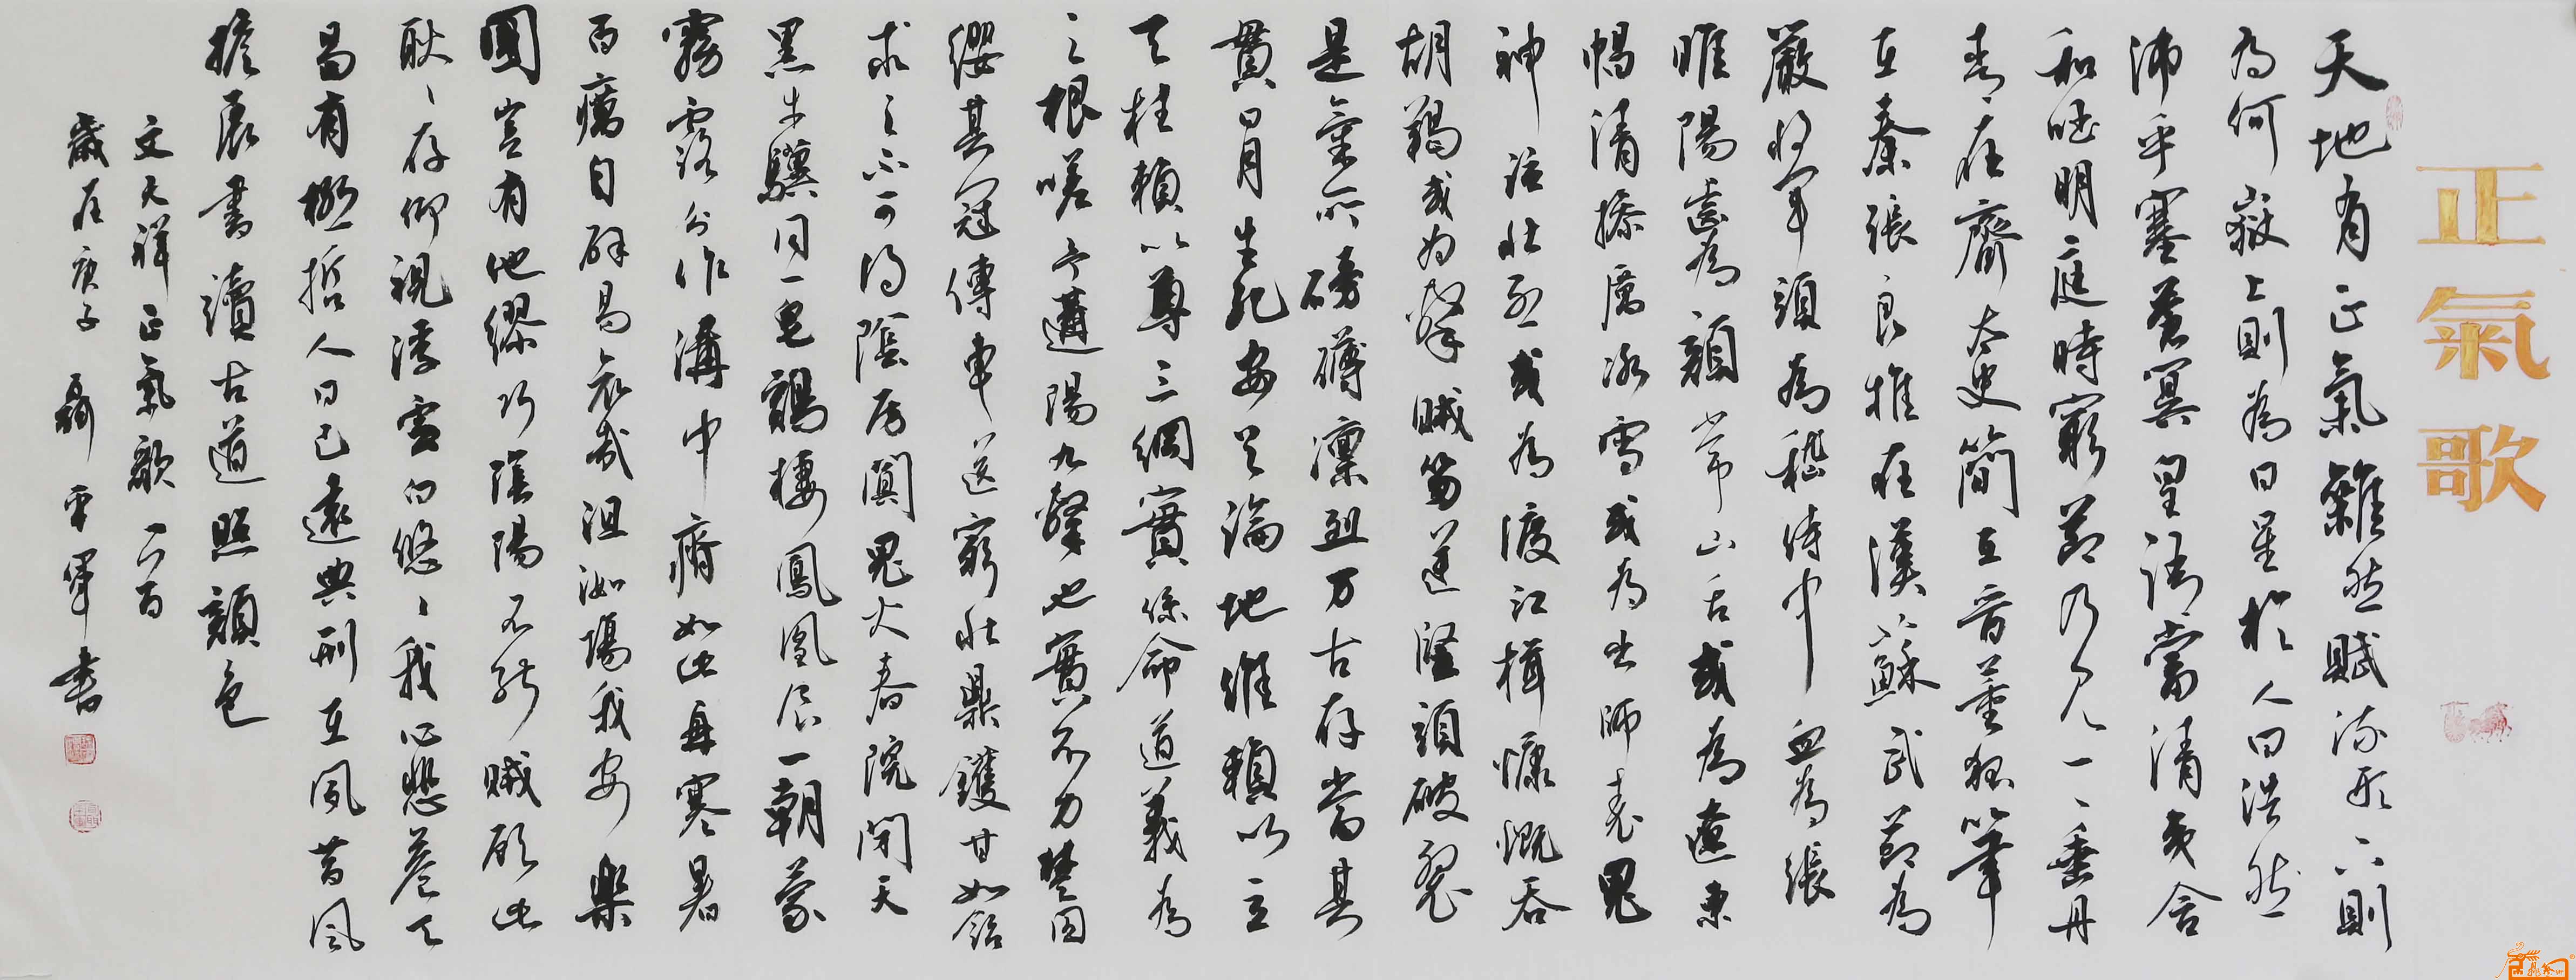 正氣歌
天地有正氣雜然賦流形下則
為河嶽上則為日星於人曰浩然
沛乎塞蒼冥皇路當清夷含
和吐明庭時窮節乃見一、垂丹
青在齊太史簡在晉董狐筆
在秦張良椎在漢蘇武節為
嚴將軍頭為嵇侍中血為張
睢陽齒為顏常山舌或為遼東
帽清操厲冰雪或為出師表鬼
神泣壯烈或為渡江楫慷慨吞
胡羯或為擊賊笏逆豎頭破裂
是氣所磅礴凜烈万古存當其
貫日月生死安足論地維賴以立
天柱賴以尊三綱實係命道義為
之根嗟予遘陽九隸也實不力楚囚
纓其冠傳車送窮北鼎鑊甘如飴
求之不可得陰房闃鬼火春院閉天
黑牛驥同一皂鷄棲鳳凰食一朝蒙
霧露分作溝中瘠如此再寒暑
百癘自辟易哀哉沮洳場我安樂
國豈有他繆巧陰陽不能賊顧此
耿、存仰視浮雲白悠、我心悲蒼天
曷有極哲人日已遠典刑在夙昔風
檐展書讀古道照顏色
文天祥正氣歌一首
歲在庚子 聶平軍書